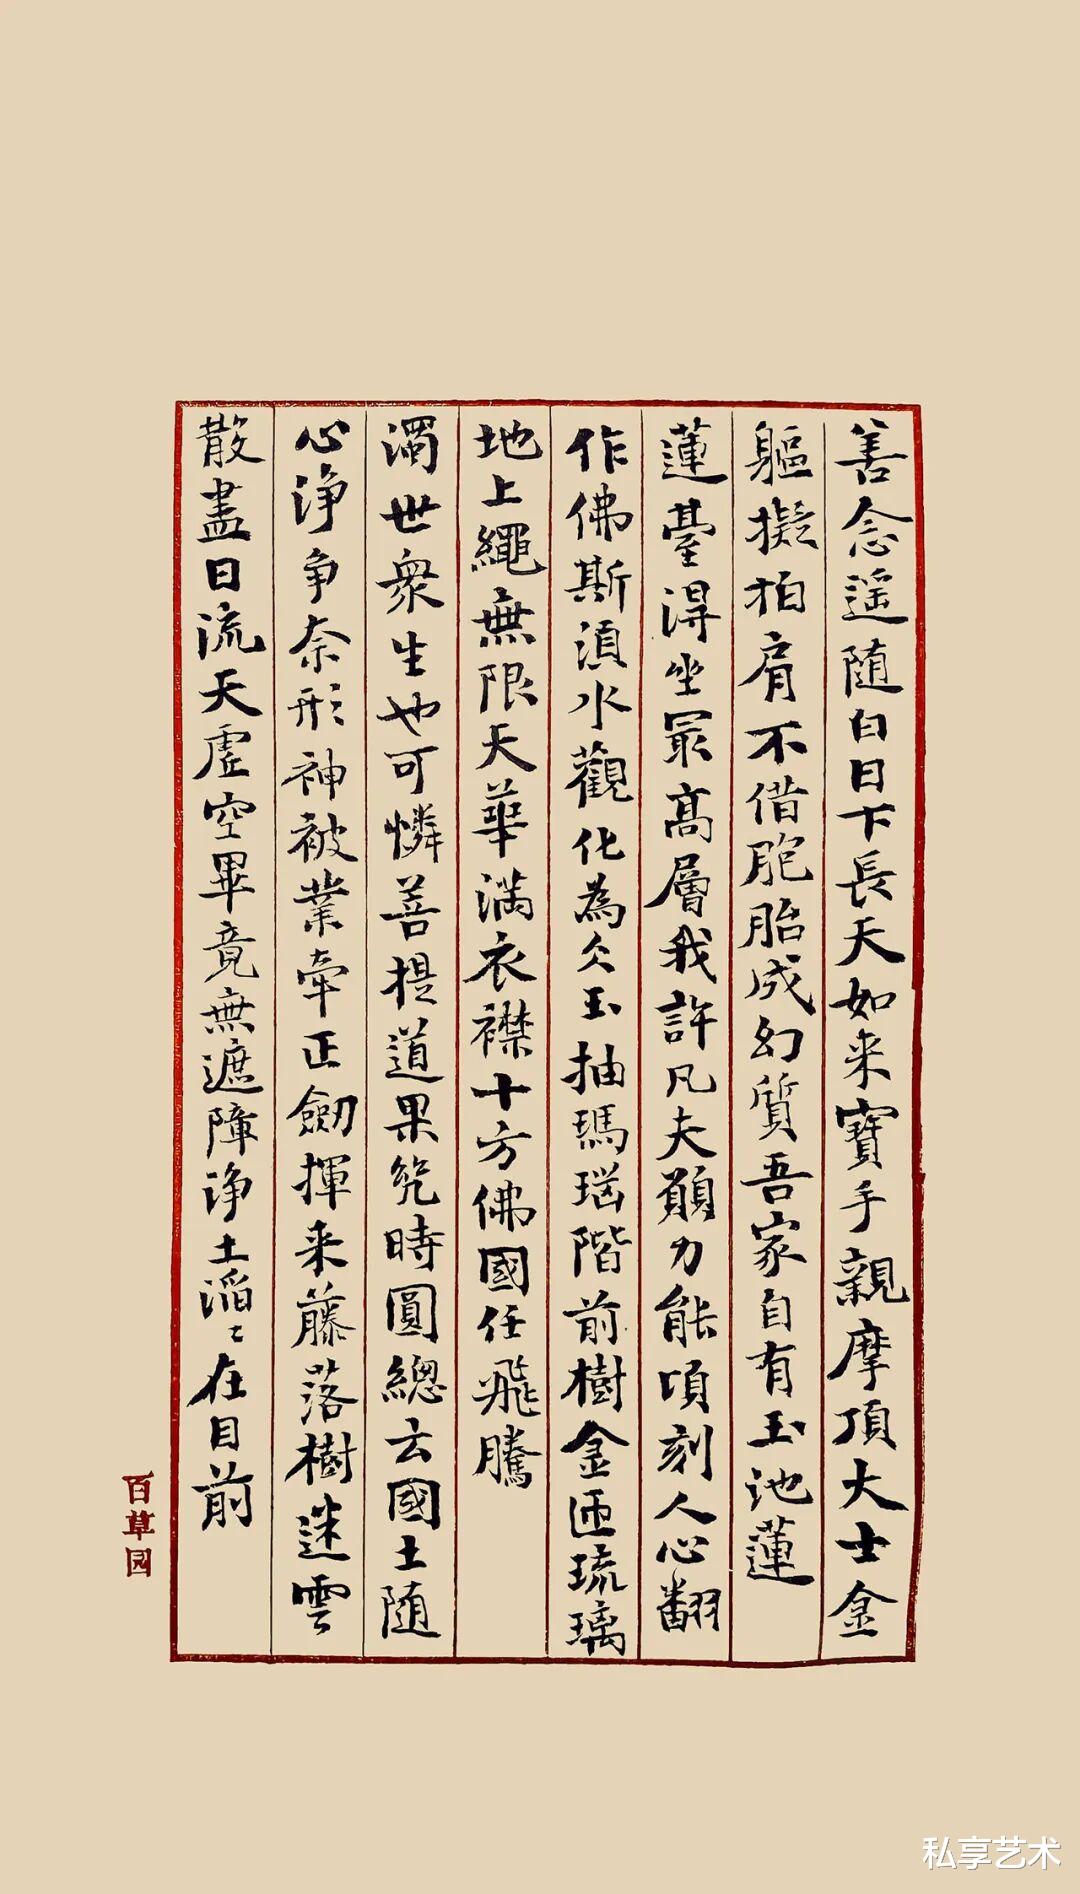 善念遥随白日下長天如来寳手親摩頂大士金
軀擬拍肩不借胞胎成幻質吾家自有玉池蓮
蓮臺淂坐最高層我許凡夫願力能頃刻人心翻
作佛斯湏水觀化為仌玉抽瑪瑙階前樹金匝琉璃
地上繩無限天華满衣襟十方佛國任飛騰
濁世衆生也可憐菩提道果㡬時圓總云國土随
心浄争奈形神被業牽正劒揮来藤落樹迷雲
散盡日流天虚空畢竟無遮障浄土滔〻在目前
百草园
私享艺术